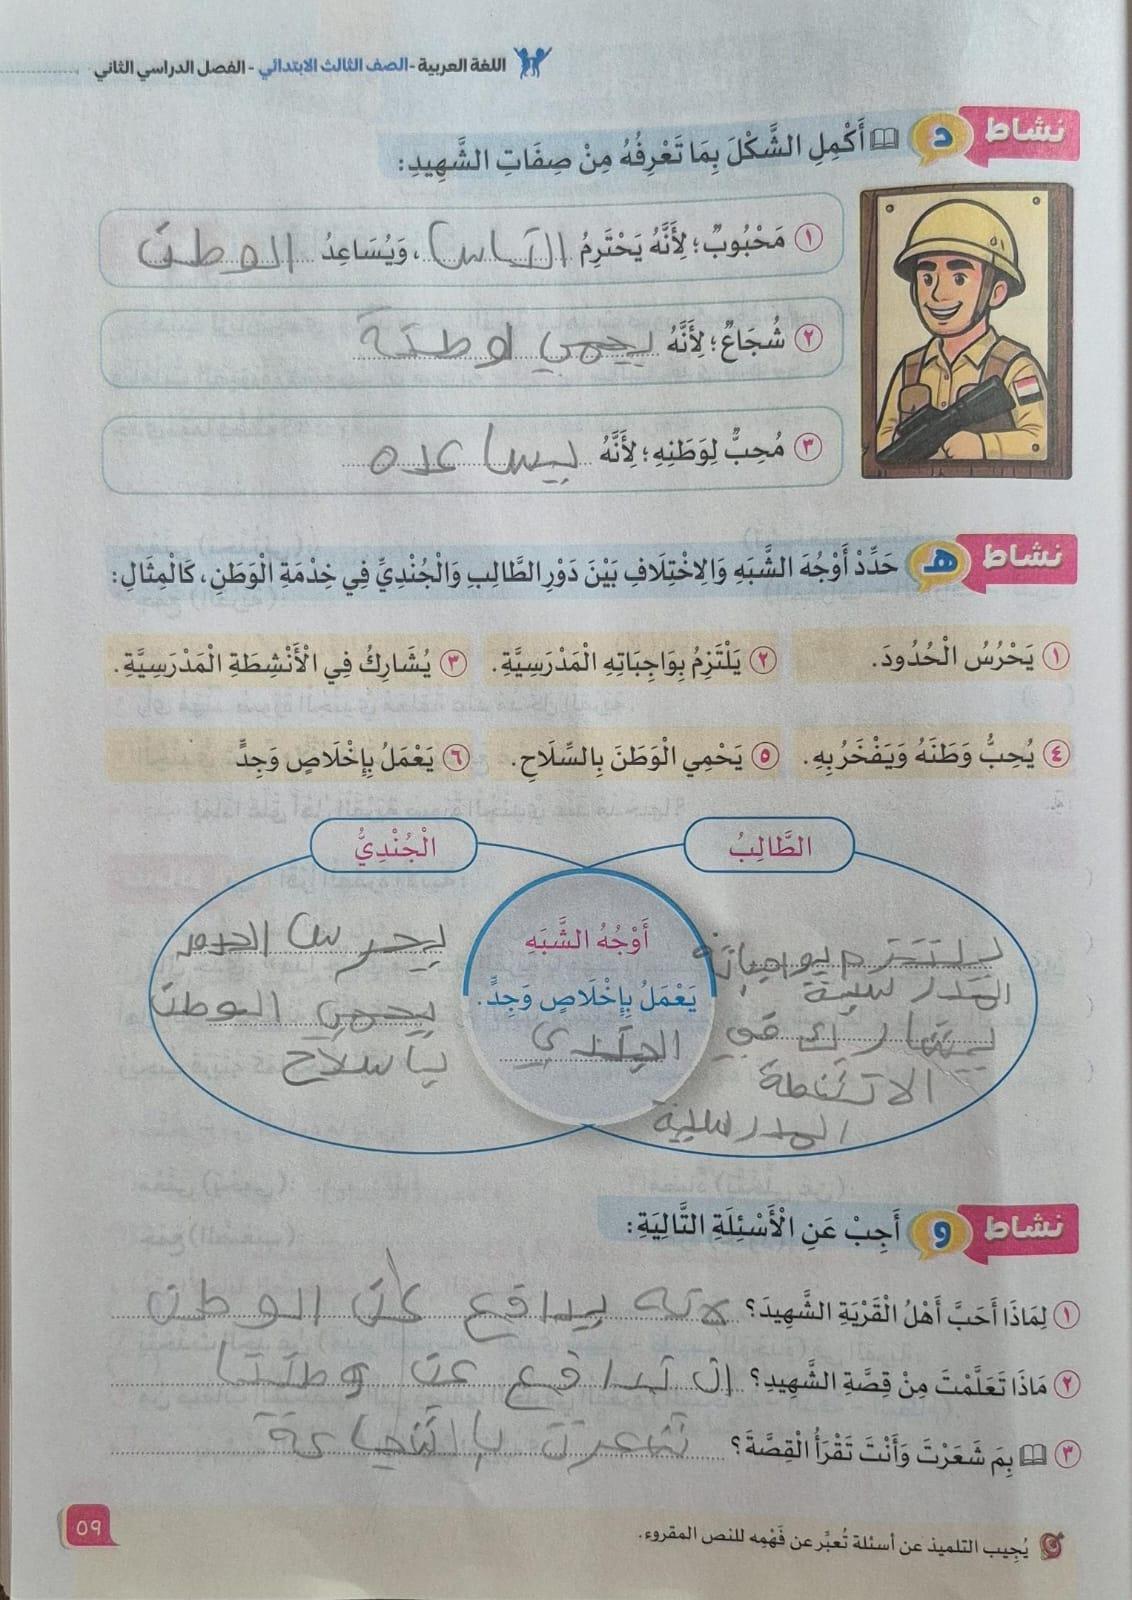 اللغة العربية - الصف الثالث الابتدائي - الفصل الدراسي الثاني
نشاط د أَكْمِلِ الشَّكْلَ بِمَا تَعْرِفُهُ مِنْ صِفَاتِ الشَّهِيدِ:
١ مَحْبُوبٌ؛ لِأَنَّهُ يَحْتَرِمُ الناس، وَيُسَاعِدُ الوطن
٢ شُجَاعٌ؛ لِأَنَّهُ يحمي لوطنة
٣ مُحِبٌّ لِوَطَنِهِ؛ لِأَنَّهُ يساعده
نشاط هـ حَدِّدْ أَوْجُهَ الشَّبَهِ وَالِاخْتِلَافِ بَيْنَ دَوْرِ الطَّالِبِ وَالْجُنْدِيِّ فِي خِدْمَةِ الْوَطَنِ، كَالْمِثَالِ:
١ يَحْرُسُ الْحُدُودَ. ٢ يَلْتَزِمُ بِوَاجِبَاتِهِ الْمَدْرَسِيَّةِ. ٣ يُشَارِكُ فِي الْأَنْشِطَةِ الْمَدْرَسِيَّةِ.
٤ يُحِبُّ وَطَنَهُ وَيَفْخَرُ بِهِ. ٥ يَحْمِي الْوَطَنَ بِالسِّلَاحِ. ٦ يَعْمَلُ بِإِخْلَاصٍ وَجِدٍّ
الطَّالِبُ
يلتزم بواجباتة
المدرسية
يشارك في
الانشطة
المدرسية
أَوْجُهُ الشَّبَهِ
يَعْمَلُ بِإِخْلَاصٍ وَجِدٍّ.
الجندي
الْجُنْدِيُّ
يحرس الحدود
يحمي الوطن
باسلاح
نشاط و أَجِبْ عَنِ الْأَسْئِلَةِ التَّالِيَةِ:
١ لِمَاذَا أَحَبَّ أَهْلُ الْقَرْيَةِ الشَّهِيدَ؟ لانه يدافع عن الوطن
٢ مَاذَا تَعَلَّمْتَ مِنْ قِصَّةِ الشَّهِيدِ؟ ان ندافع عن وطننا
٣ بِمَ شَعَرْتَ وَأَنْتَ تَقْرَأُ الْقِصَّةَ؟ شعرت بالشجاعة
يُجِيب التلميذ عن أسئلة تُعبِّر عن فَهْمِه للنص المقروء.
٥٩